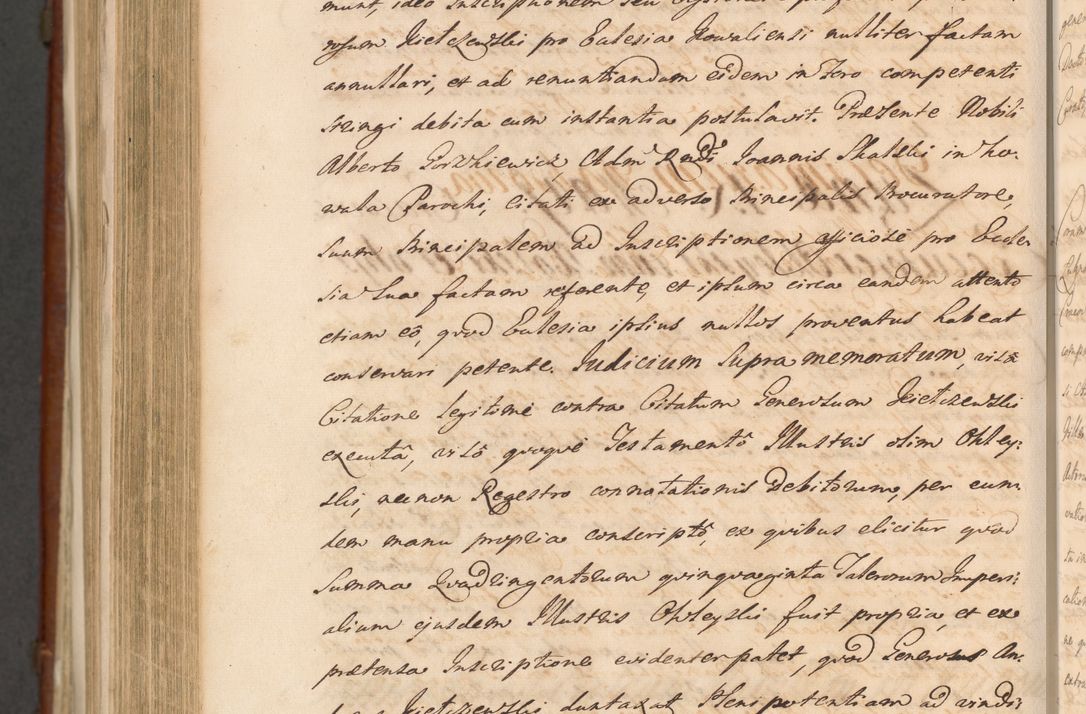 munt, ideo Inscriptionem seu
rosum Kietczewski pro Ecclesia Kowaliensi nulliter factam
annullari, et ad renuntiandum eidem in Foro competenti
stringi debita cum instantia postulavit. Præsente Nobili
Alberto Gorzkiewicz Adm: Rndi Joannis Skalski in Ko-
wala Parochi, Citati ex adverso Principalis Procuratore,
suum Principalem ad Inscriptionem officiose pro Eccle-
sia sua factam referente, et ipsum circa eandem attento
etiam eô, quod Ecclesia ipsius nullos proventus habeat
conservari petente. Iudicium supra memoratum, visâ
Citatione legitimè contra Citatum Generosum Kietczewski
executâ, visô quoque Testamentô Illustris olim Okley-
ski, nec non Regestro connotationis Debitorum, per eun-
dem manu propria conscriptô, ex quibus elicitur quod
summa Quadringentorum quinquaginta Talerorum Imperi-
alium ejusdem Illustris Okleyski fuit propria, et ex
prætensa Inscriptione evidenter patet, quod Generosus An-
Kietczewski duntaxat Plenipotentiam ad vindi-